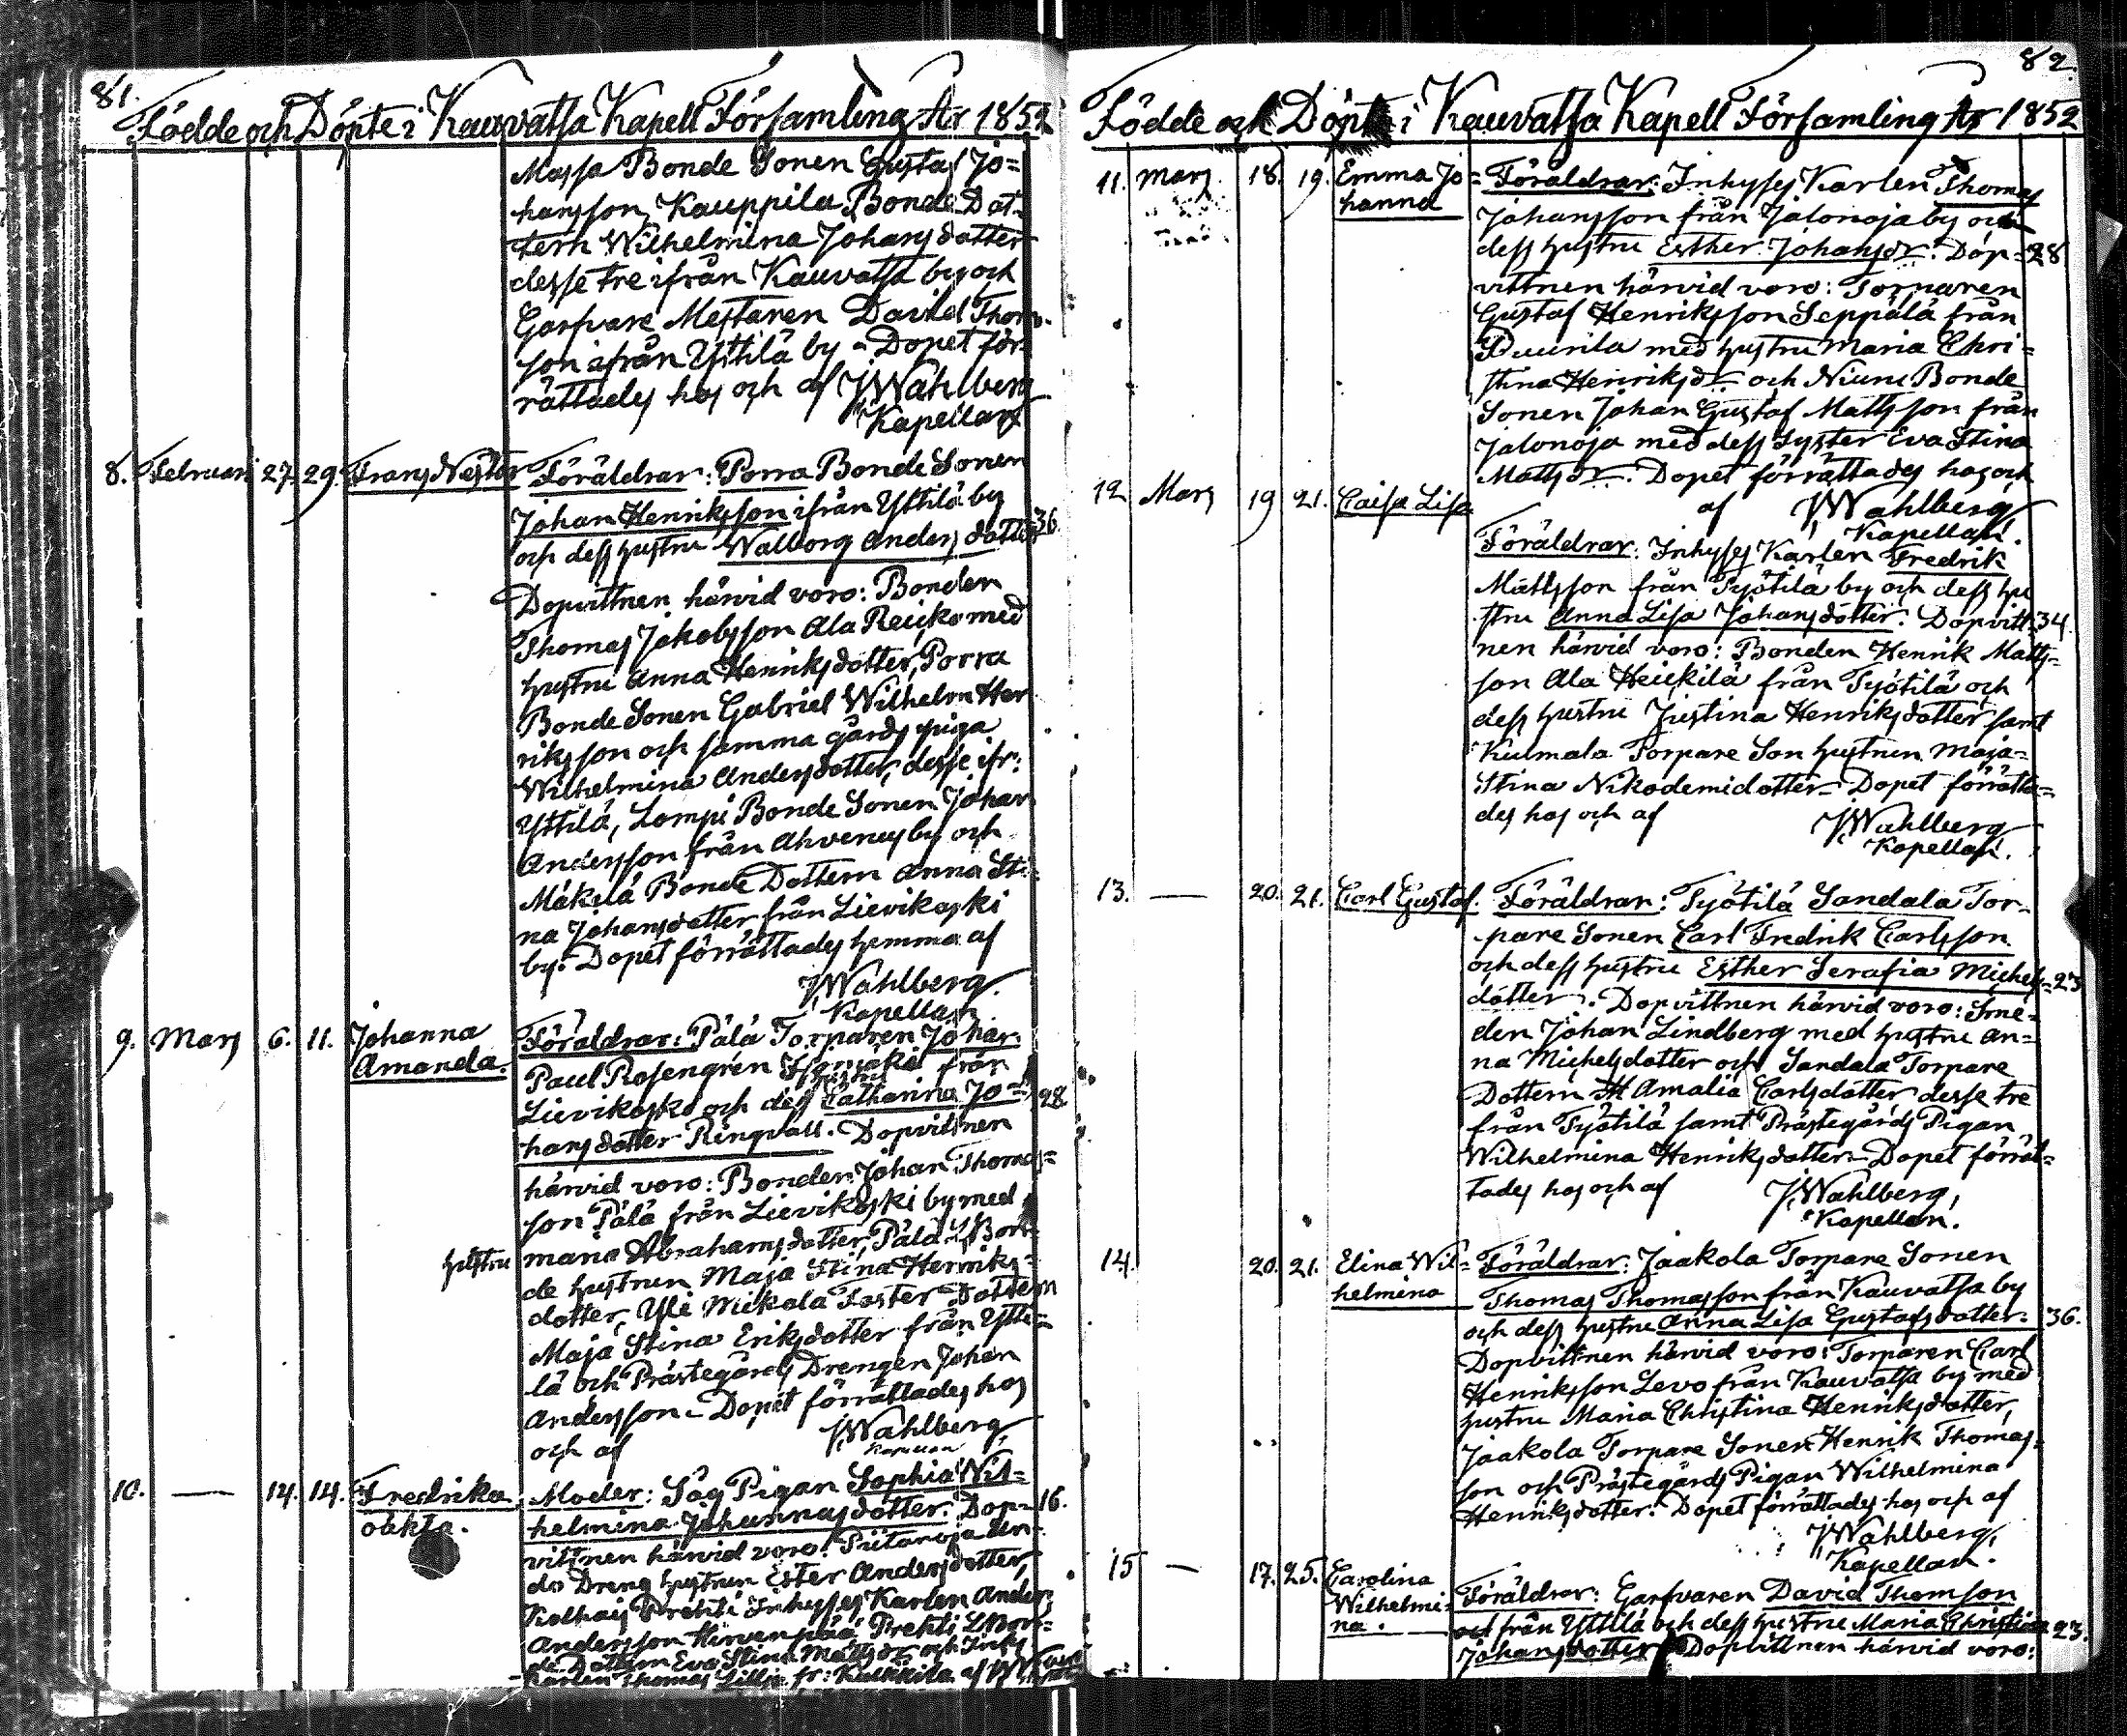 81.
Födde och Döpte i Kauvatsa Kapell Församling År 1852
Massa Bonde Sonen Gustaf Jo=
hansson, Kauppila Bonde Dot-
tern Wilhelmina Johansdotter
desse tre ifrån Kauvatsa by och
Garfvare Mestaren David Thom-
son ifrån Yttilä by - Dopet för-
rättades hos och af JWahlberg
Kapellan
8. Februari 27. 29. Frans Nestor Föräldrar: Porra Bonde Sonen
Johan Henriksson ifrån Yttilä by
och dess hustru Walborg Andersdotter 36.
Dopvittnen härvid voro: Bonden
Thomas Jakobsson Ala Reicko med
hustru Anna Henriksdotter, Porra
Bonde Sonen Gabriel Wilhelm Hen
riksson och samma gårds piga
Wilhelmina Andersdotter, desse ifr:
Yttilä, Lompi Bonde Sonen Johan
Andersson från Ahvenus by och
Mäkilä Bonde Dottern Anna Sti-
na Johansdotter från Lievikoski
by. Dopet förrättades hemma af
JWahlberg.
Kapellan
9. Mars 6. 11. Johanna Föräldrar: Pälä Torparen Johan
Amanda. Paul Rosengrén från
hustru
Lievikoski och dess Catharina Jo= 28
hansdotter Ringvall. Dopvittnen
härvid voro: Bonden Johan Thomas=
son Pälä från Lievikoski by med
hustru Maria Abrahamsdotter, Pälä Bon-
de hustrun Maja Stina Henriks=
dotter, Yli Mickola Foster Dottern
Maja Stina Eriksdotter från Ytti=
lä och Prästegårds Drengen Johan
Andersson - Dopet förrättades hos
och af JWahlberg
Kapellan
10. — 14. 14. Fredrika Moder: Säg Pigan Sophia Wil=
oäkta. helmina Johannasdotter. Dop- 16.
vittnen härvid voro: Piitanoja
Dreng hustrun Ester Andersdotter,
Inhyses Karlen Anders
Andersson Prehti Bon=
de Dottern Eva Stina Mattsdr och Inhs
Karlen Thomas fr: af
82.
Födde och Döpte i Kauvatsa Kapell Församling År 1852
11. Mars. 18. 19. Emma Jo= Föräldrar: Inhyses Karlen Thomas
hanna Johansson från Jalonoja by och
dess hustru Esther Johansdr. Dop= 28
vittnen härvid voro: Torparen
Gustaf Henriksson Seppälä från
Puurila med hustru Maria Chri=
stina Henriksdr och Niuni Bonde
Sonen Johan Gustaf Mattsson från
Jalonoja med dess Syster Eva Stina
Mattsdr. Dopet förrättades hos och
af JWahlberg
Kapellan.
12 Mars 19 21. Caisa Lisa
Föräldrar: Inhyses Karlen Fredrik
Mattsson från Työtilä by och dess hu
stru Anna Lisa Johansdotter. Dopvitt= 34.
nen härvid voro: Bonden Henrik Matts=
son Ala Heickilä från Työtilä och
dess hustru Justina Henriksdotter samt
Kulmala Torpare Son hustrun Maja=
Stina Nikodemidotter - Dopet förrätta=
des hos och af JWahlberg
Kapellan.
13. — 20. 21. Carl Gustaf. Föräldrar: Työtilä Sandala Tor-
pare Sonen Carl Fredrik Carlsson
och dess hustru Esther Serafia Michels= 23
dotter. Dopvittnen härvid voro: Sme=
den Johan Lindberg med hustru An=
na Michelsdotter och Sandala Torpare
Dottern Amalia Carlsdotter desse tre
från Työtilä samt Prästegårds Pigan
Wilhelmina Henriksdotter - Dopet förrät=
tades hos och af JWahlberg,
Kapellan.
14. 20. 21. Elina Wil= Föräldrar: Jaakola Torpare Sonen
helmina Thomas Thomasson från Kauvatsa by
och dess hustru Anna Lisa Gustafsdotter. 36.
Dopvittnen härvid voro: Torparen Carl
Henriksson Levo från Kauvatsa by med
hustru Maria Christina Henriksdotter,
Jaakola Torpare Sonen Henrik Thomas=
son och Prästegårds Pigan Wilhelmina
Henriksdotter. Dopet förrättades hos och af
JWahlberg,
Kapellan.
15 — 17. 25. Carolina
Wilhelmi= Föräldrar: Garfvaren David Thomson
na. från Yttilä och dess hustru Maria Christina 23.
Johansdotter Dopvittnen härvid voro: